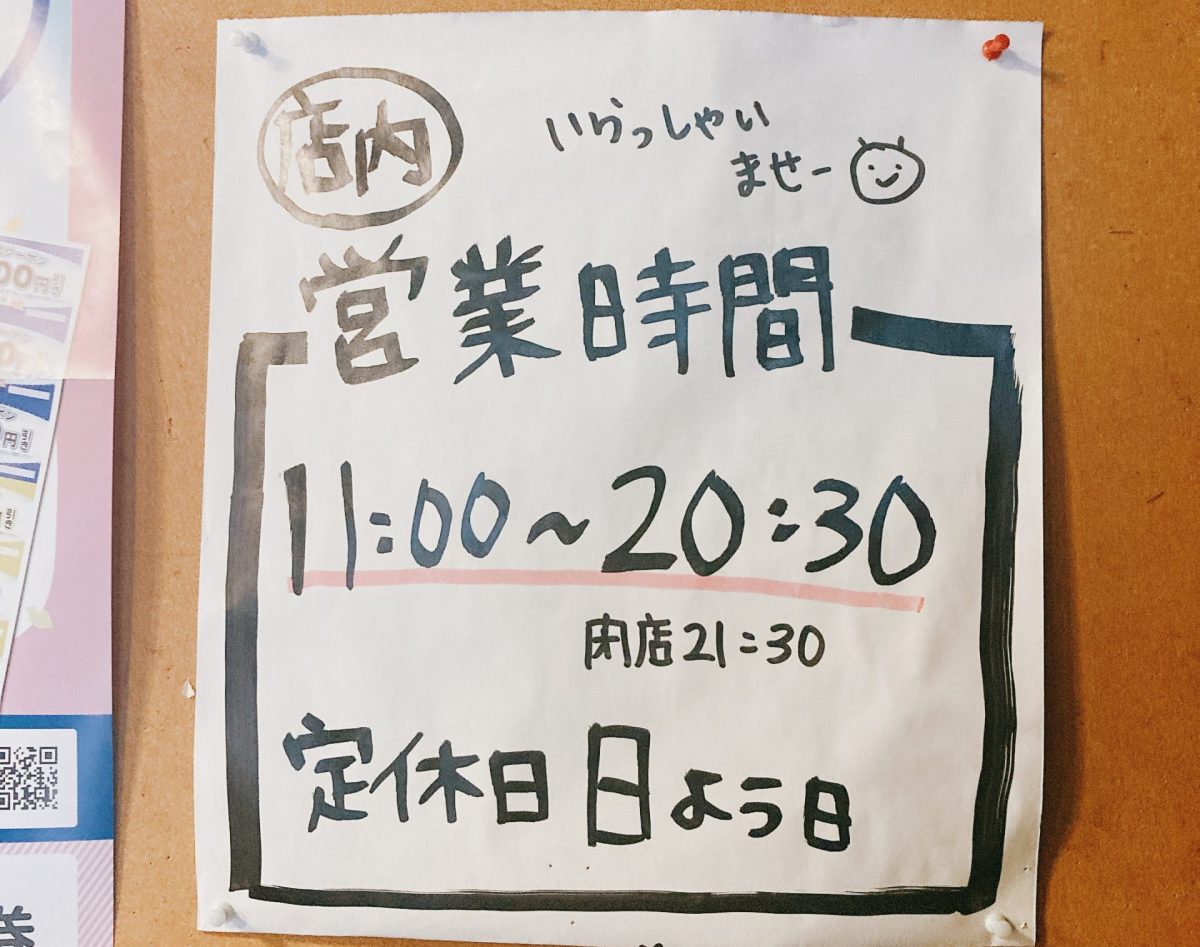 店内
いらっしゃい
ませー
営業時間
11:00~20:30
閉店21:30
定休日 日よう日